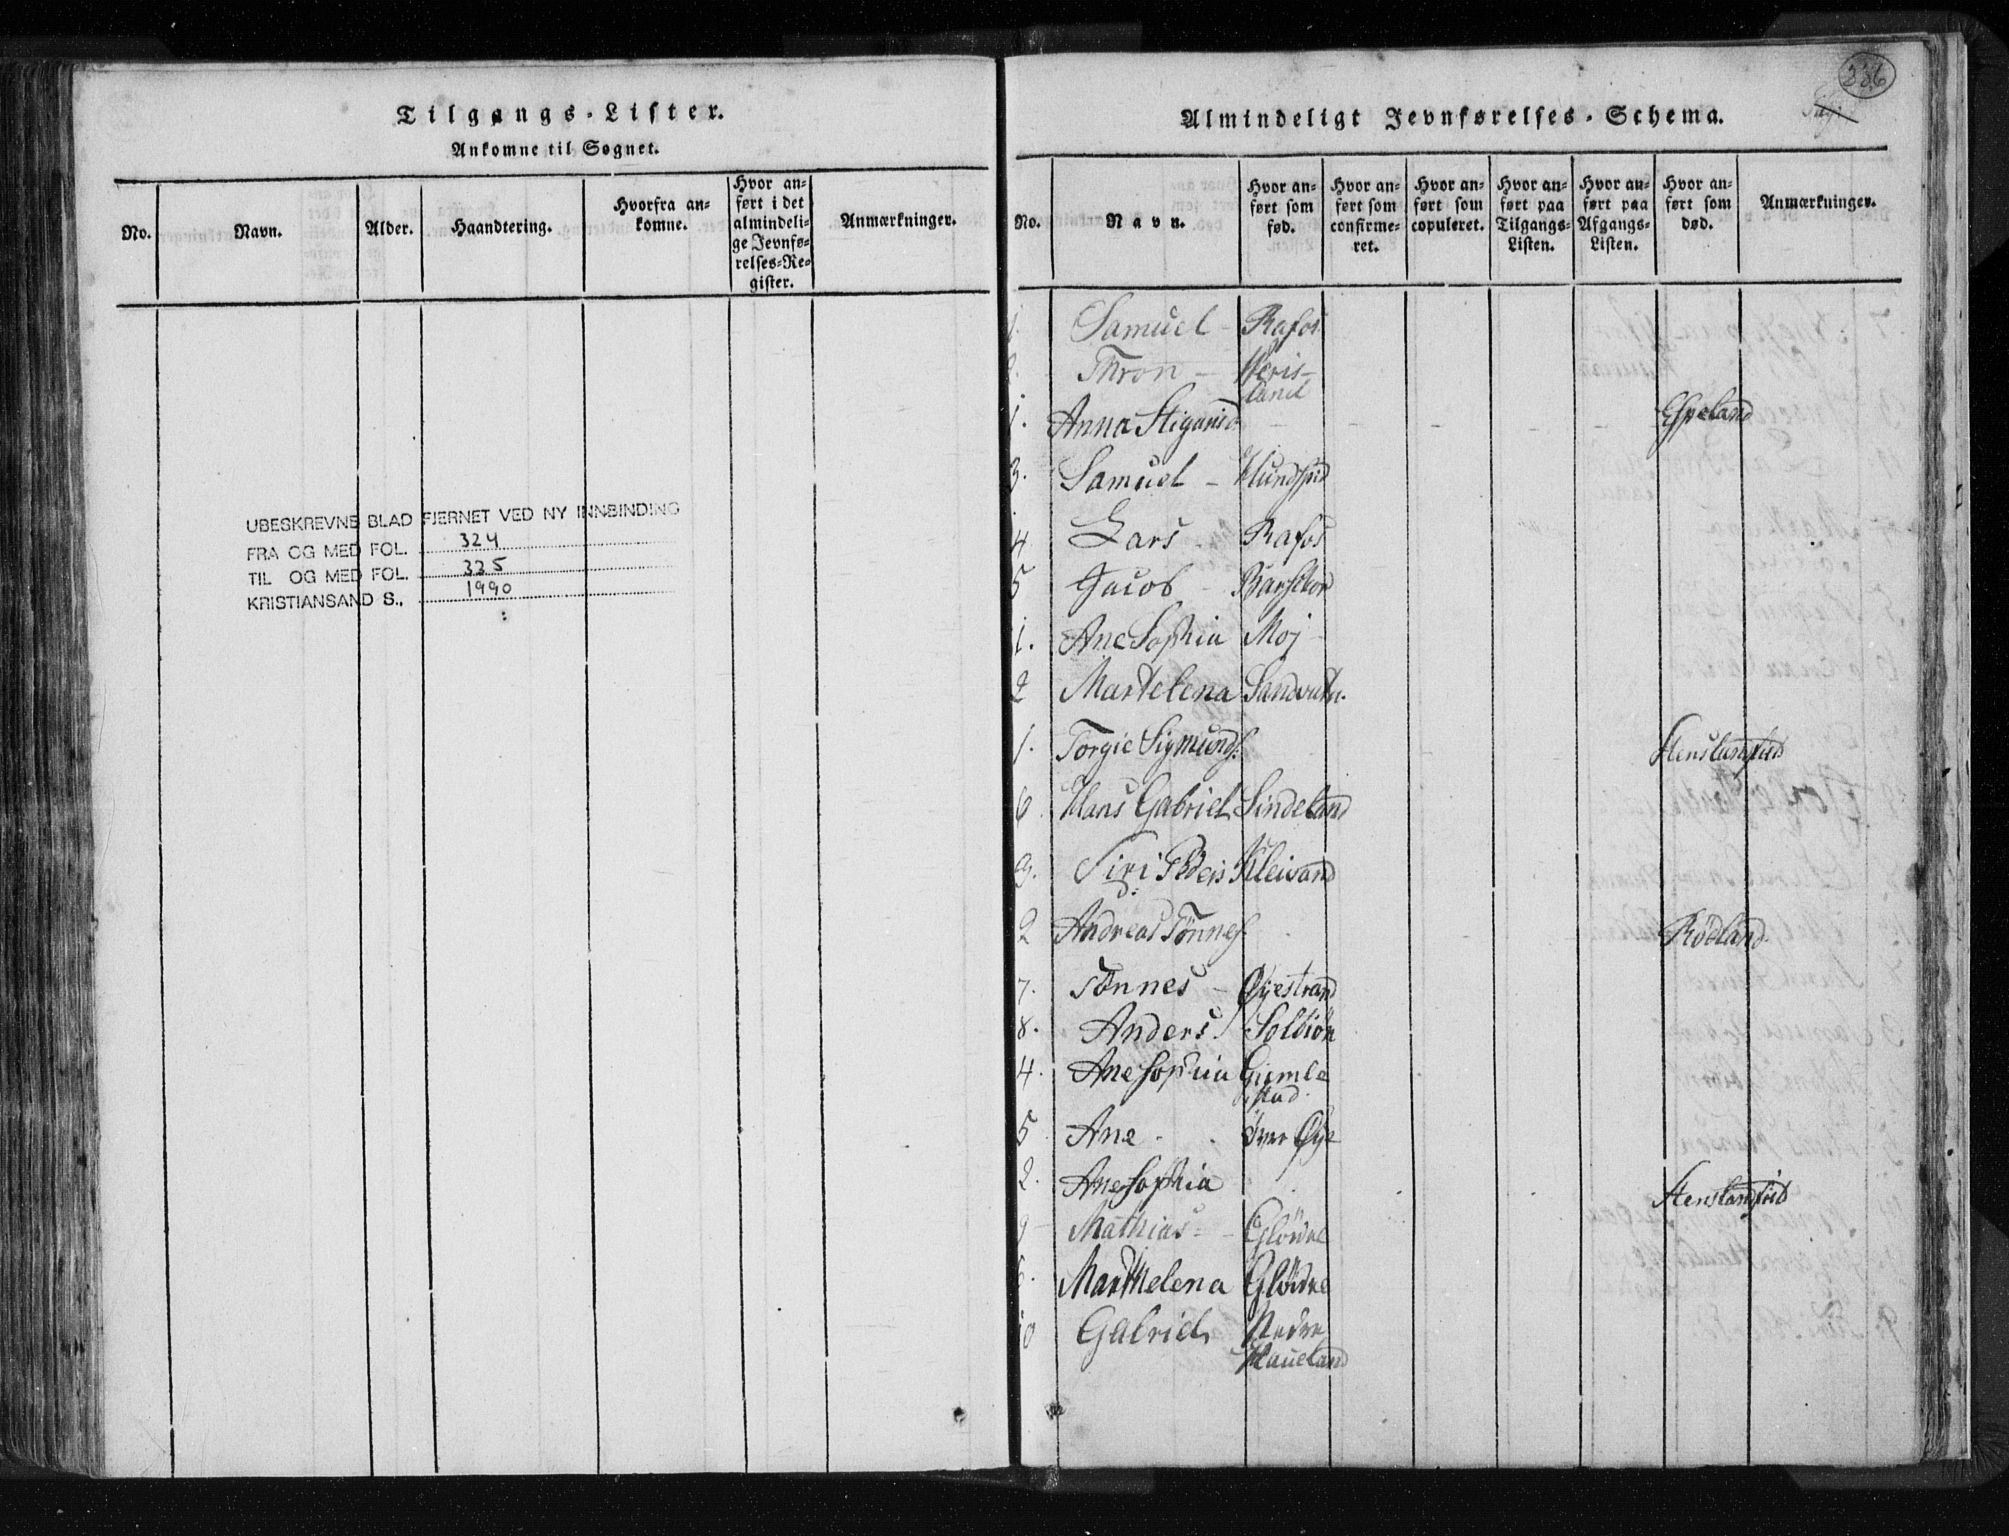 Tilgangs-Lister.
Ankomne til Sognet.
No. Navn. Alder. Haandtering. Hvorfra ankomne. Hvor anført i det almindelige Jevnførelses-Register. Anmærkninger.
UBESKREVNE BLAD FJERNET VED NY INNBINDING
FRA OG MED FOL. 324
TIL OG MED FOL. 325
KRISTIANSAND S., 1990
326
Almindeligt Jevnførelses-Schema.
No. Navn. Hvor anført som fød. Hvor anført som confirmeret. Hvor anført som copuleret. Hvor anført paa Tilgangs-Listen. Hvor anført paa Afgangs-Listen. Hvor anført som død. Anmærkninger.
1. Samuel - Rafos
2. Thron - Veris-
land
1. Anna Stigansd. Espeland
3. Samuel -
4 Lars Rafos
5 Jacob -
1. Ane Sophia Moj
2 Marthelena Sandvatn.
1. Torgie Sigmunds.
6 Hans Gabriel Sindeland
3. Siri Peders Kleivand
d.
2 Andreas Tönnes. Rödland
7. Tönnes - Øyestrand
8. Anders
4. Ane Sophia Gumle
stad
5 Ane Øye
2. Ane Sophia
9 Mathias - Glödre
6. Marthelena Glödre
10 Gabriel Nedre
Haueland